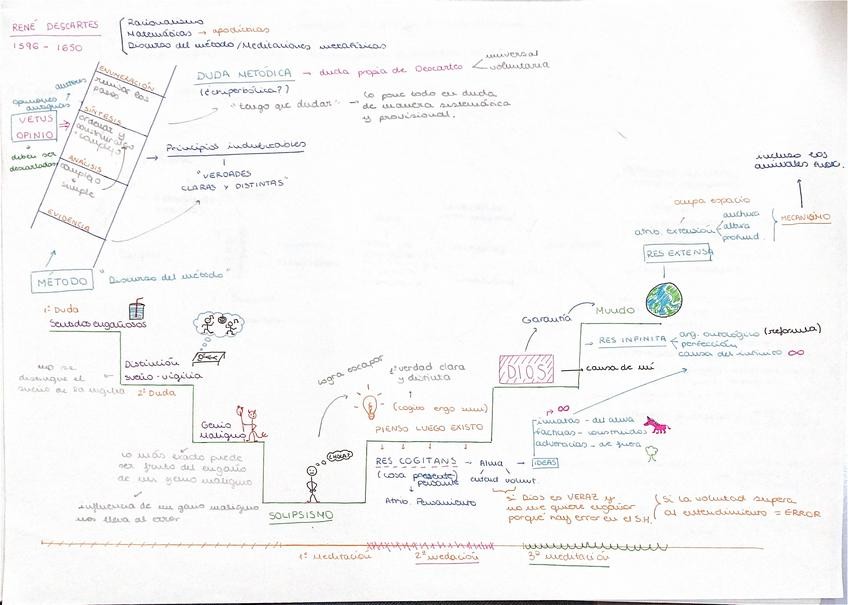 RENÉ DESCARTES
1596 - 1650
Racionalismo
Matemáticas → apodícticas
Discurso del método/Meditaciones metafísicas
ENUMERACIÓN
revisar los
pasos
SÍNTESIS
ordenar y
complejo
ANÁLISIS
complejo
simple
EVIDENCIA
opiniones
antiguas
VETUS
OPINIO
deben ser
descartadas
MÉTODO
"Discurso del método"
DUDA METÓDICA → duda propia de Descartes
universal
voluntaria
(è hiperbólica?)
"tengo que dudar" → lo pone todo en duda
de manera sistemática
y provisional.
Principios indudables
"VERDADES
CLARAS Y DISTINTAS"
incluso los
animales
ocupa espacio
atrib. extensión
anchura
altura
profund.
MECANISMO
RES EXTENSA
1ª Duda
Sentidos engañosos
no se
distingue el
sueño de la vigilia
Distinción
sueño-vigilia
2ª Duda
Genio
Maligno
lo más exacto puede
ser fruto del engaño
de un genio maligno
influencia de un genio maligno
nos lleva al error
SOLIPSISMO
logra escapar
1ª verdad clara
y distinta
(cogito ergo sum)
PIENSO LUEGO EXISTO
RES COGITANS → Alma → IDEAS
(cosa pensante)
entend volunt.
Atrib. Pensamiento
Garantía
DIOS
causa de mí
Mundo
RES INFINITA
arg. ontológico (reformula)
perfección
causa del infinito ∞
∞
innatas - del alma
facticias - construidas
adventicias - de fuera
si Dios es VERAZ y
no me quiere engañar
porqué hay error en el S.H.
Si la voluntad supera
al entendimiento = ERROR
1ª Meditación
2ª medación
3ª meditación